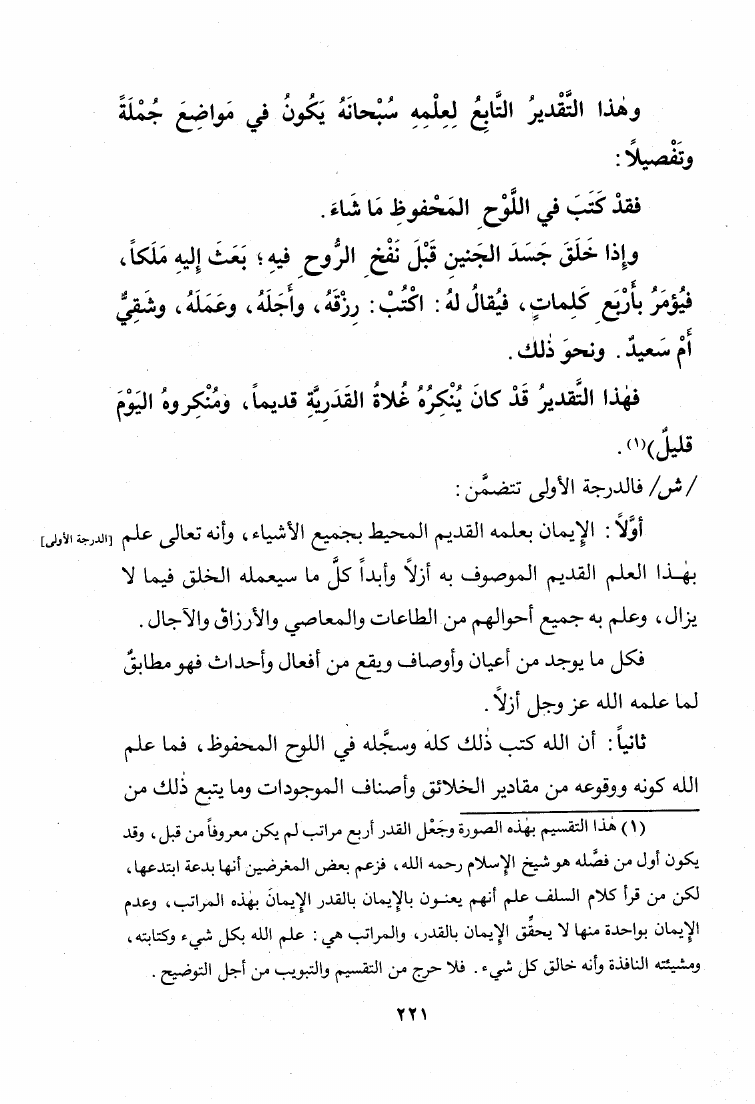 وهٰذا التَّقْديرُ التَّابِعُ لِعِلْمِهِ سُبْحانَهُ يَكُونُ في مَواضِعَ جُمْلَةً
وتَفْصيلاً :
فقدْ كَتَبَ في اللَّوْحِ المَحْفوظِ مَا شَاءَ .
وإِذا خَلَقَ جَسَدَ الجَنينِ قَبْلَ نَفْخِ الرُّوحِ فيهِ؛ بَعَثَ إِليهِ مَلَكاً،
فيُؤمَرُ بأَرْبَعِ كَلِماتٍ، فيُقالُ لهُ: اكْتُبْ: رِزْقَهُ، وأَجَلَهُ، وعَمَلَهُ، وشَقِيٌّ
أَمْ سَعيدٌ. ونحوَ ذٰلك.
فهٰذا التَّقديرُ قَدْ كانَ يُنْكِرُهُ غُلاةُ القَدَرِيَّةِ قديماً، ومُنْكِروهُ اليَوْمَ
قليلٌ)(١) .
/ش/ فالدرجة الأولى تتضمَّن :
أوَّلاً: الإِيمان بعلمه القديم المحيط بجميع الأشياء، وأنه تعالى علم [الدرجة الأولى]
بهٰذا العلم القديم الموصوف به أزلاً وأبداً كلَّ ما سيعمله الخلق فيما لا
يزال، وعلم به جميع أحوالهم من الطاعات والمعاصي والأرزاق والآجال.
فكل ما يوجد من أعيان وأوصاف ويقع من أفعال وأحداث فهو مطابقٌ
لما علمه الله عز وجل أزلاً.
ثانياً: أن الله كتب ذٰلك كله وسجَّله في اللوح المحفوظ، فما علم
الله كونه ووقوعه من مقادير الخلائق وأصناف الموجودات وما يتبع ذٰلك من
(١) هٰذا التقسيم بهٰذه الصورة وجَعْل القدر أربع مراتب لم يكن معروفاً من قبل، وقد
يكون أول من فصَّله هو شيخ الإِسلام رحمه الله، فزعم بعض المغرضين أنها بدعة ابتدعها،
لكن من قرأ كلام السلف علم أنهم يعنون بالإِيمان بالقدر الإِيمانَ بهٰذه المراتب، وعدم
الإِيمان بواحدة منها لا يحقِّق الإِيمان بالقدر، والمراتب هي: علم الله بكل شيء وكتابته،
ومشيئته النافذة وأنه خالق كل شيء. فلا حرج من التقسيم والتبويب من أجل التوضيح.
٢٢١